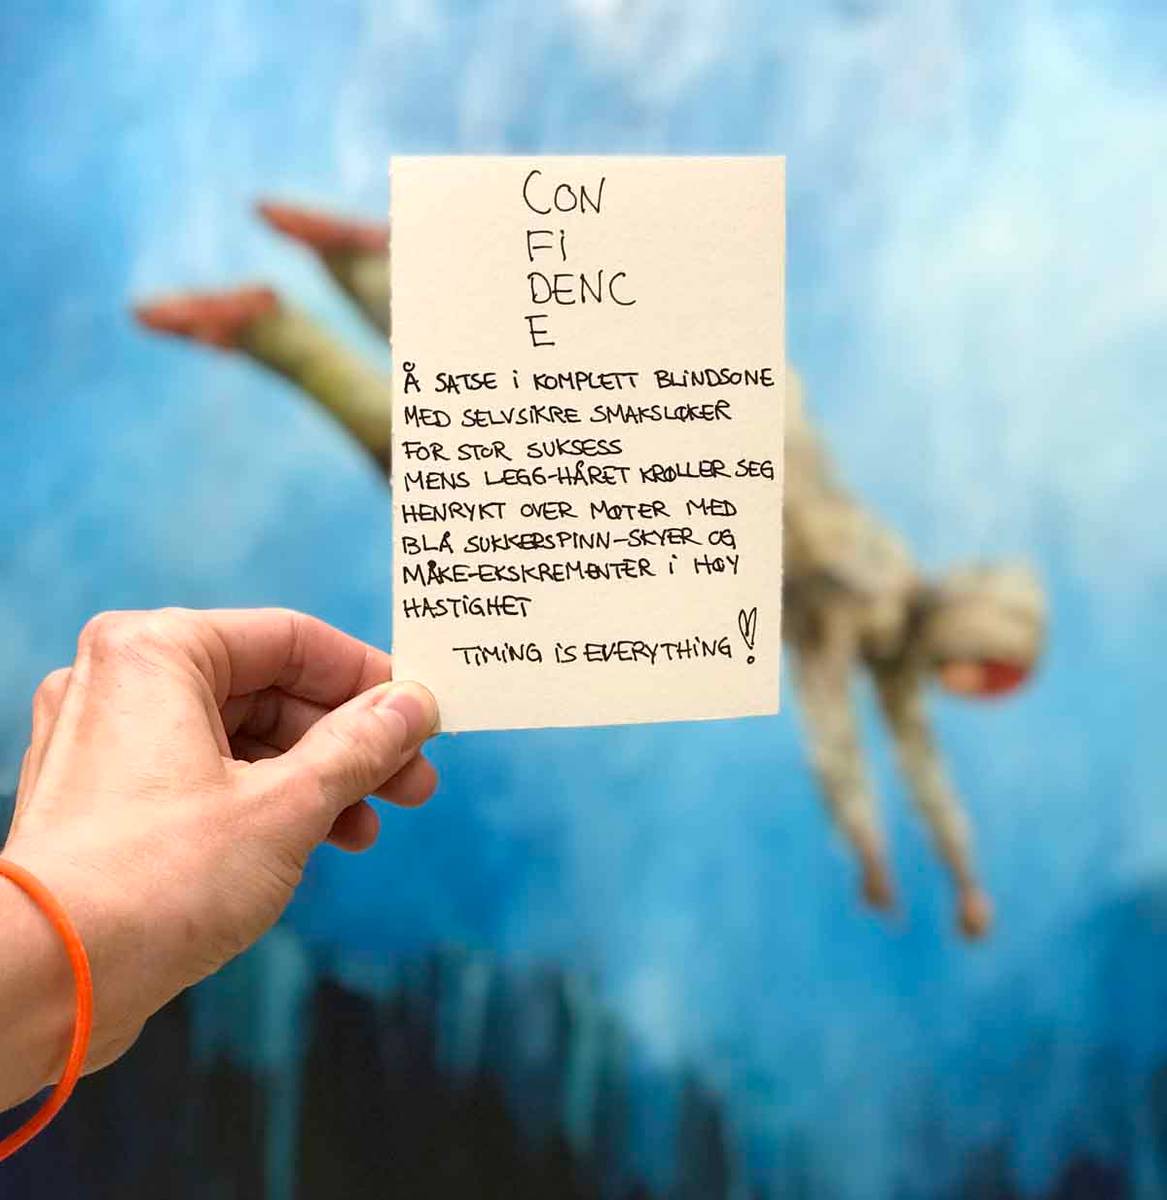 CON
Fi
DENC
E
Å SATSE i KOMPLETT BLiNDSONE
MED SELVSiKRE SMAKSLØKER
FOR STOR SUKSESS
MENS LEGG-HÅRET KRØLLER SEG
HENRYKT OVER MØTER MED
BLÅ SUKKERSPINN-SKYER OG
MÅKE-EKSKREMENTER i HØY
HASTiGHET
TiMiNG iS EVERYTHiNG!